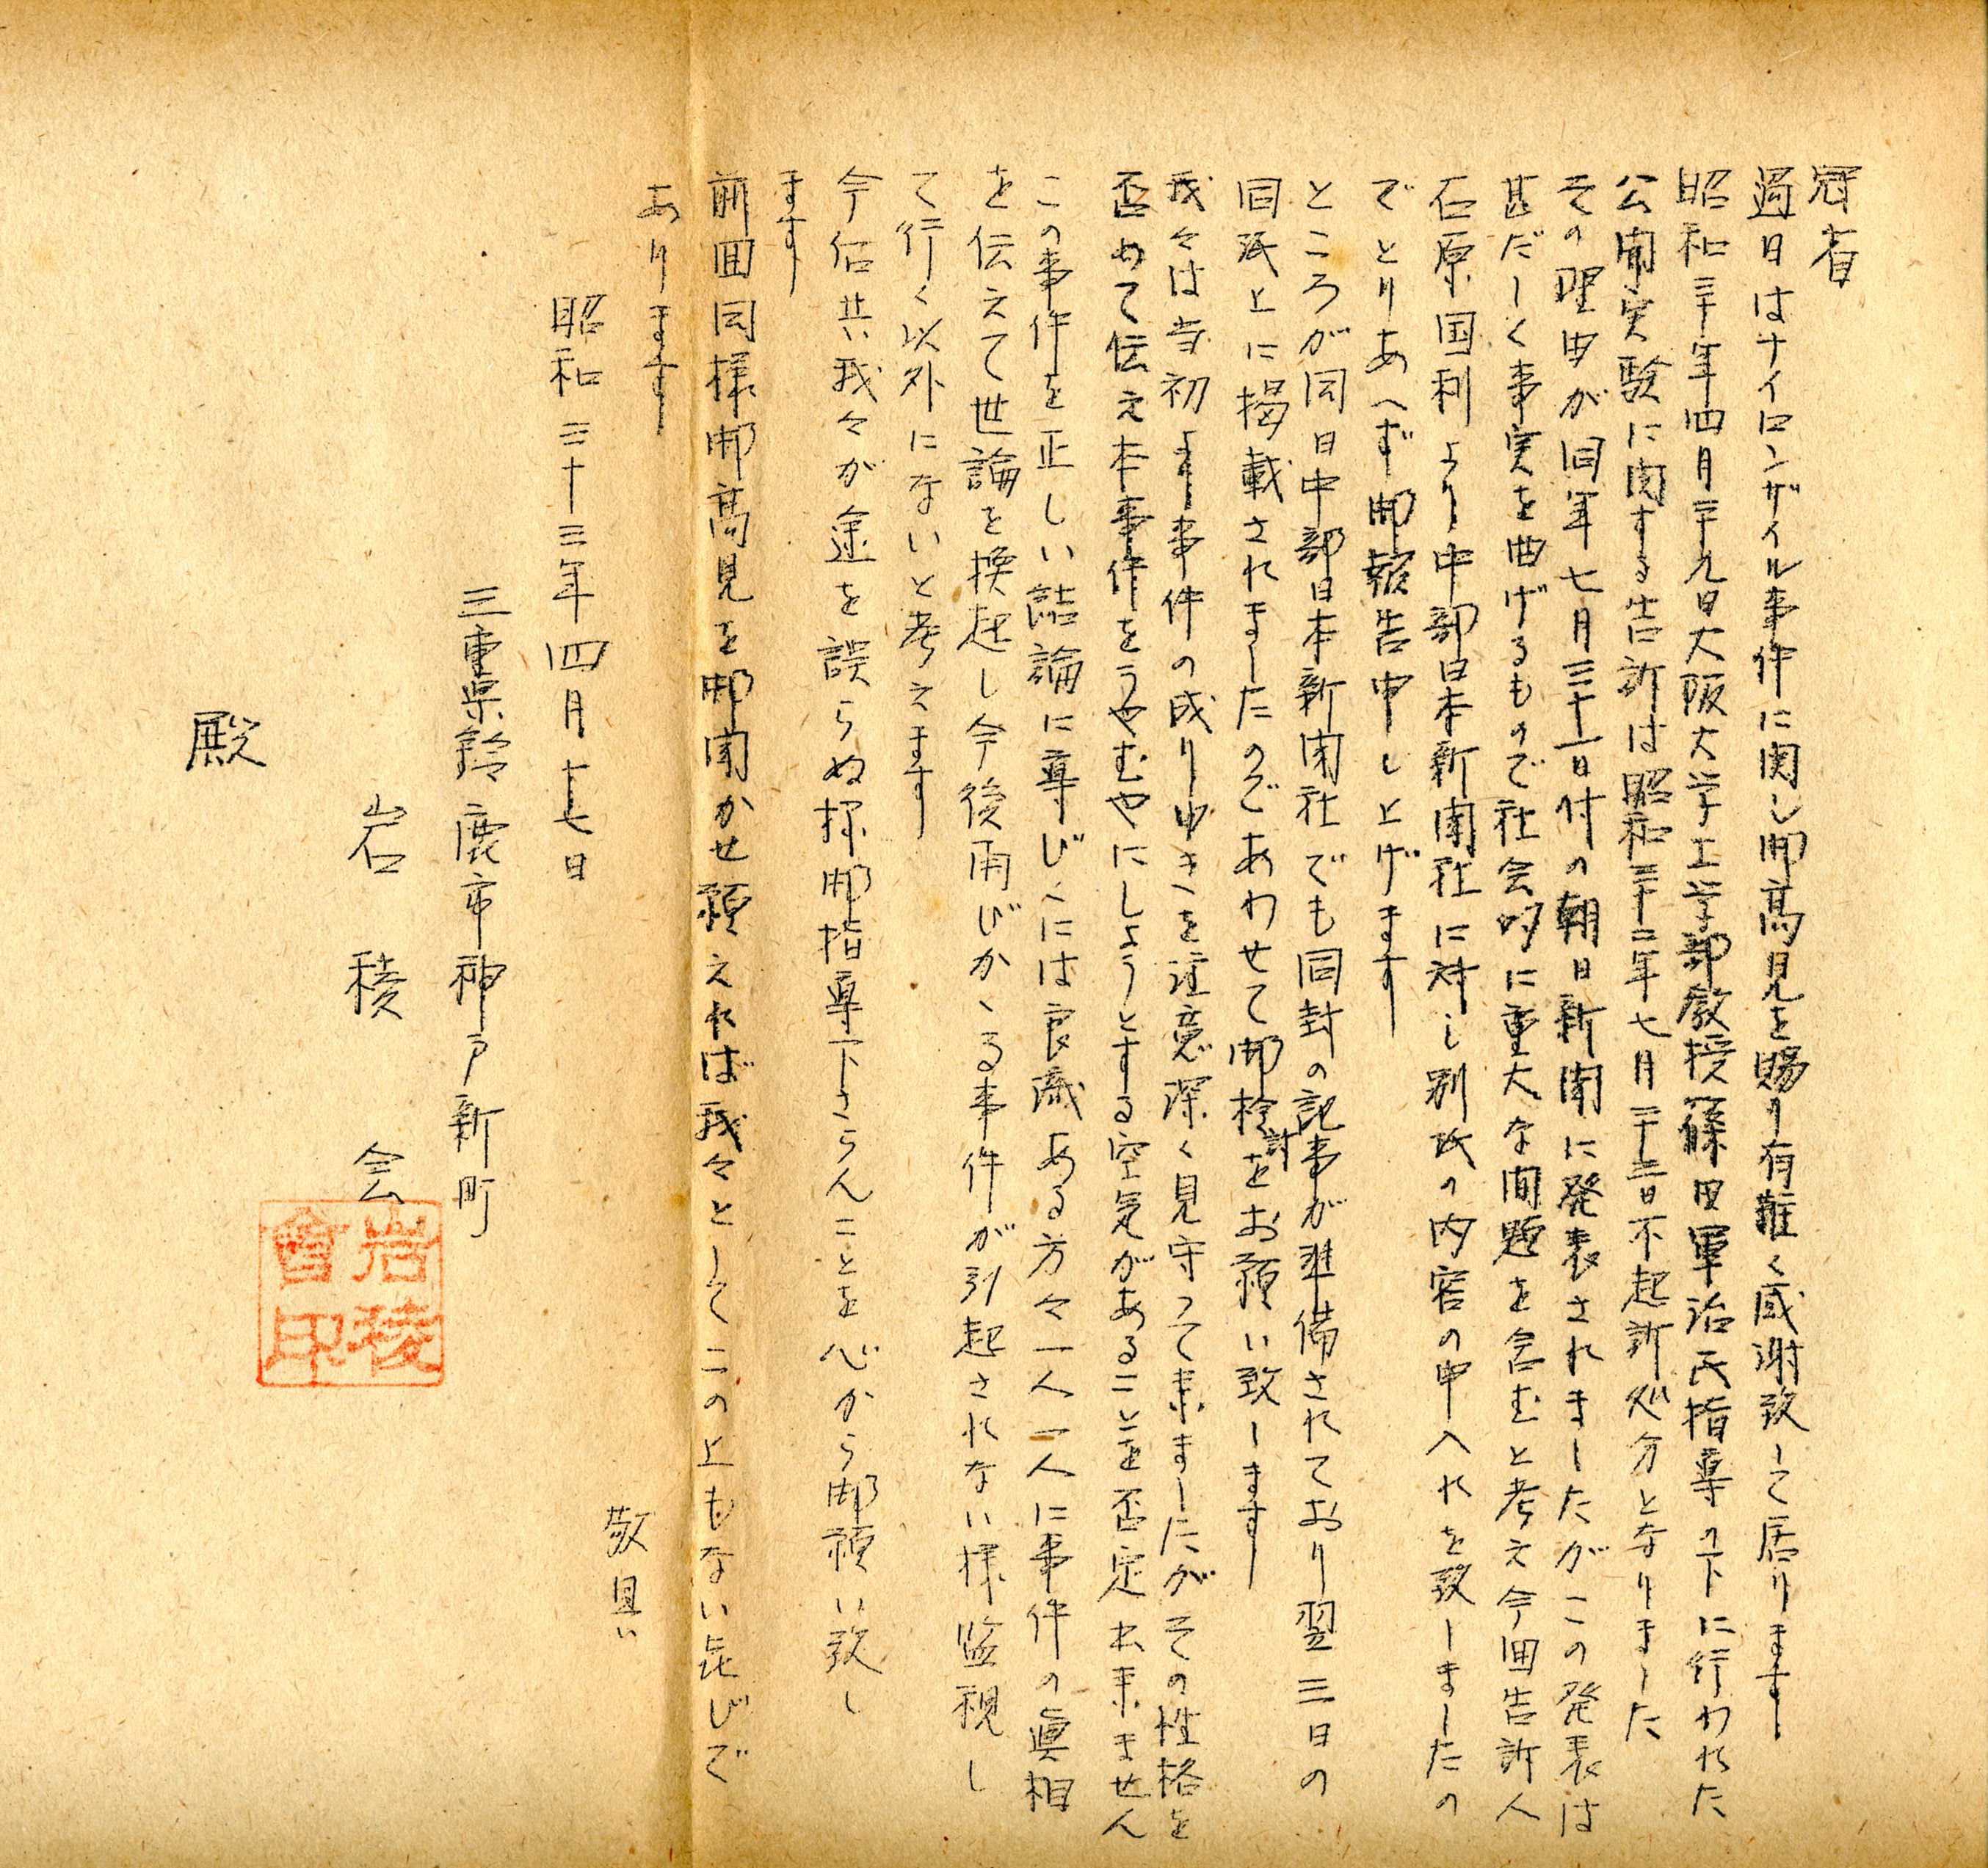 冠省
過日はナイロンザイル事件に関し御高見を賜り有難く感謝致して居ります
昭和三十年四月二十九日大阪大学工学部教授篠田軍治氏指導の下に行われた
公開実験に関する告訴は昭和三十二年七月二十三日不起訴処分となりました
その理由が同年七月三十一日付の朝日新聞に発表されましたがこの発表は
甚だしく事実を曲げるもので社会的に重大な問題を含むと考え今回告訴人
石原国利より中部日本新聞社に対し別紙の内容の申入れを致しましたの
でとりあへず御報告申し上げます
ところが同日中部日本新聞社でも同封の記事が準備されており翌三日の
同紙上に掲載されましたのであわせて御検討をお願い致します
我々は当初より事件の成りゆきを注意深く見守って来ましたがその性格を
歪めて伝え本事件をうやむやにしようとする空気があることを否定出来ません
この事件を正しい結論に導びくには良識ある方々一人一人に事件の眞相
を伝えて世論を換起し今後再びかゝる事件が引起されない様監視し
て行く以外にないと考えます
今后共我々が途を誤らぬ様御指導下さらんことを心から御願い致し
ます
前回同様御高見を御聞かせ願えれば我々としてこの上もない㐂びで
あります
敬具
昭和三十三年四月十七日
三重県鈴鹿市神戸新町
岩稜会
殿
岩稜
會印